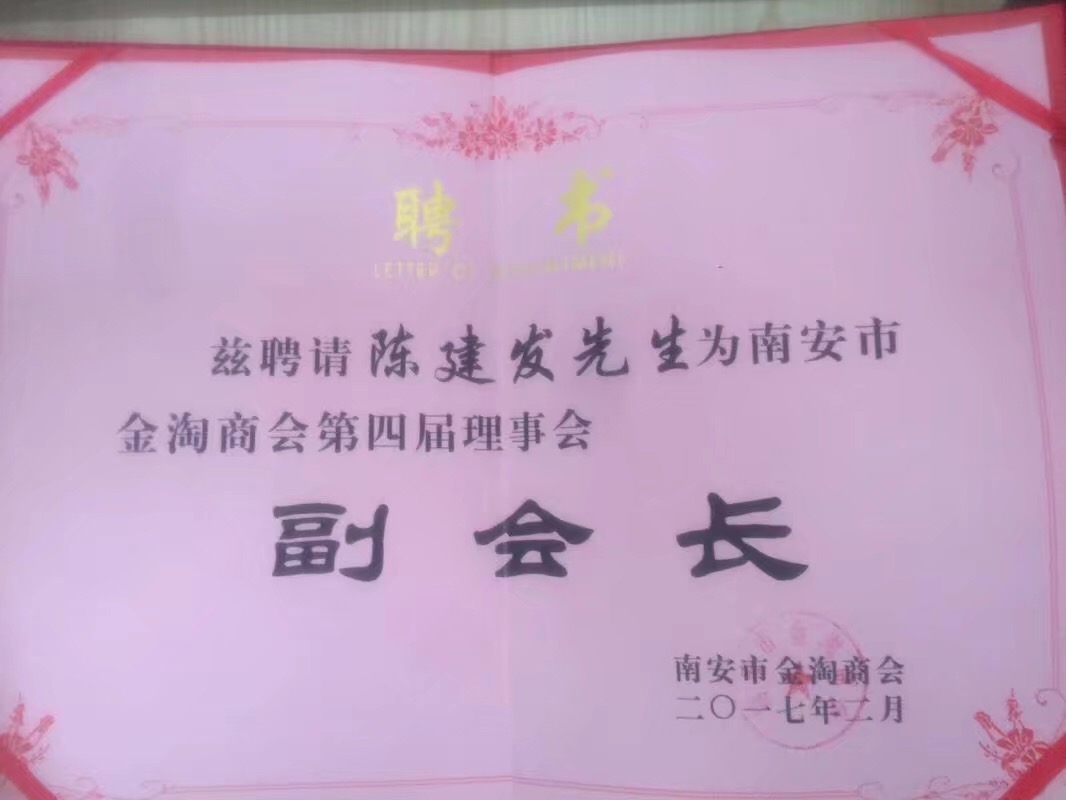 聘书
LETTER OF APPOINTMENT
兹聘请陈建发先生为南安市
金淘商会第四届理事会
副会长
南安市金淘商会
二〇一七年二月